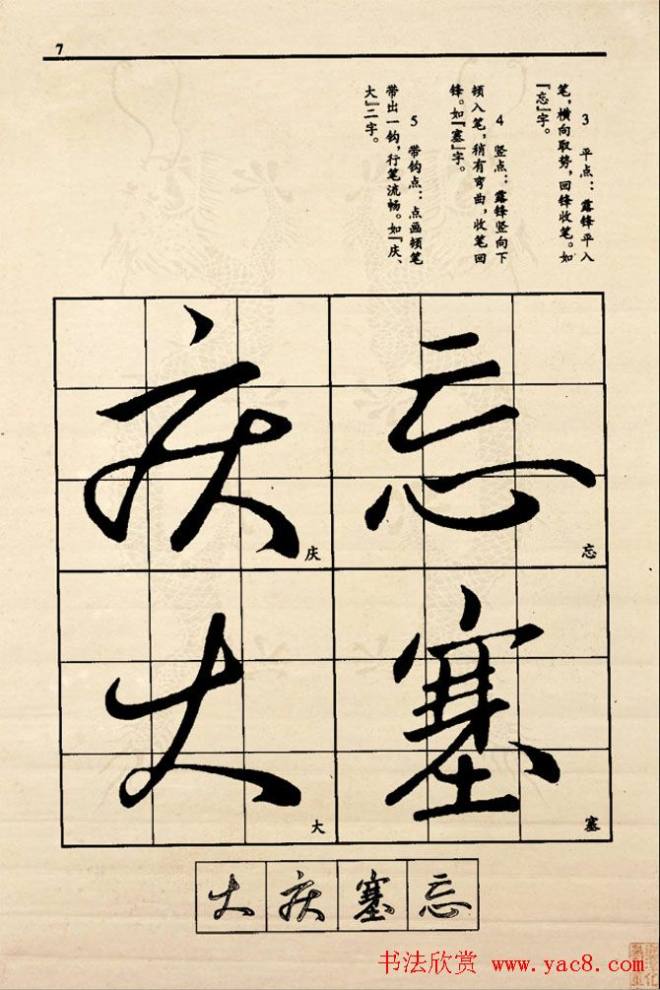 7
3　平点：露锋平入
笔，横向取势，回锋收笔。如
『忘』字。
4　竖点：露锋竖向下
顿入笔，稍有弯曲，收笔回
锋。如『塞』字。
5　带钩点：点画顿笔
带出一钩，行笔流畅。如『庆、
大』二字。
忘
忘
塞
塞
庆
庆
大
大
大庆塞忘
书法欣赏 www.yac8.com